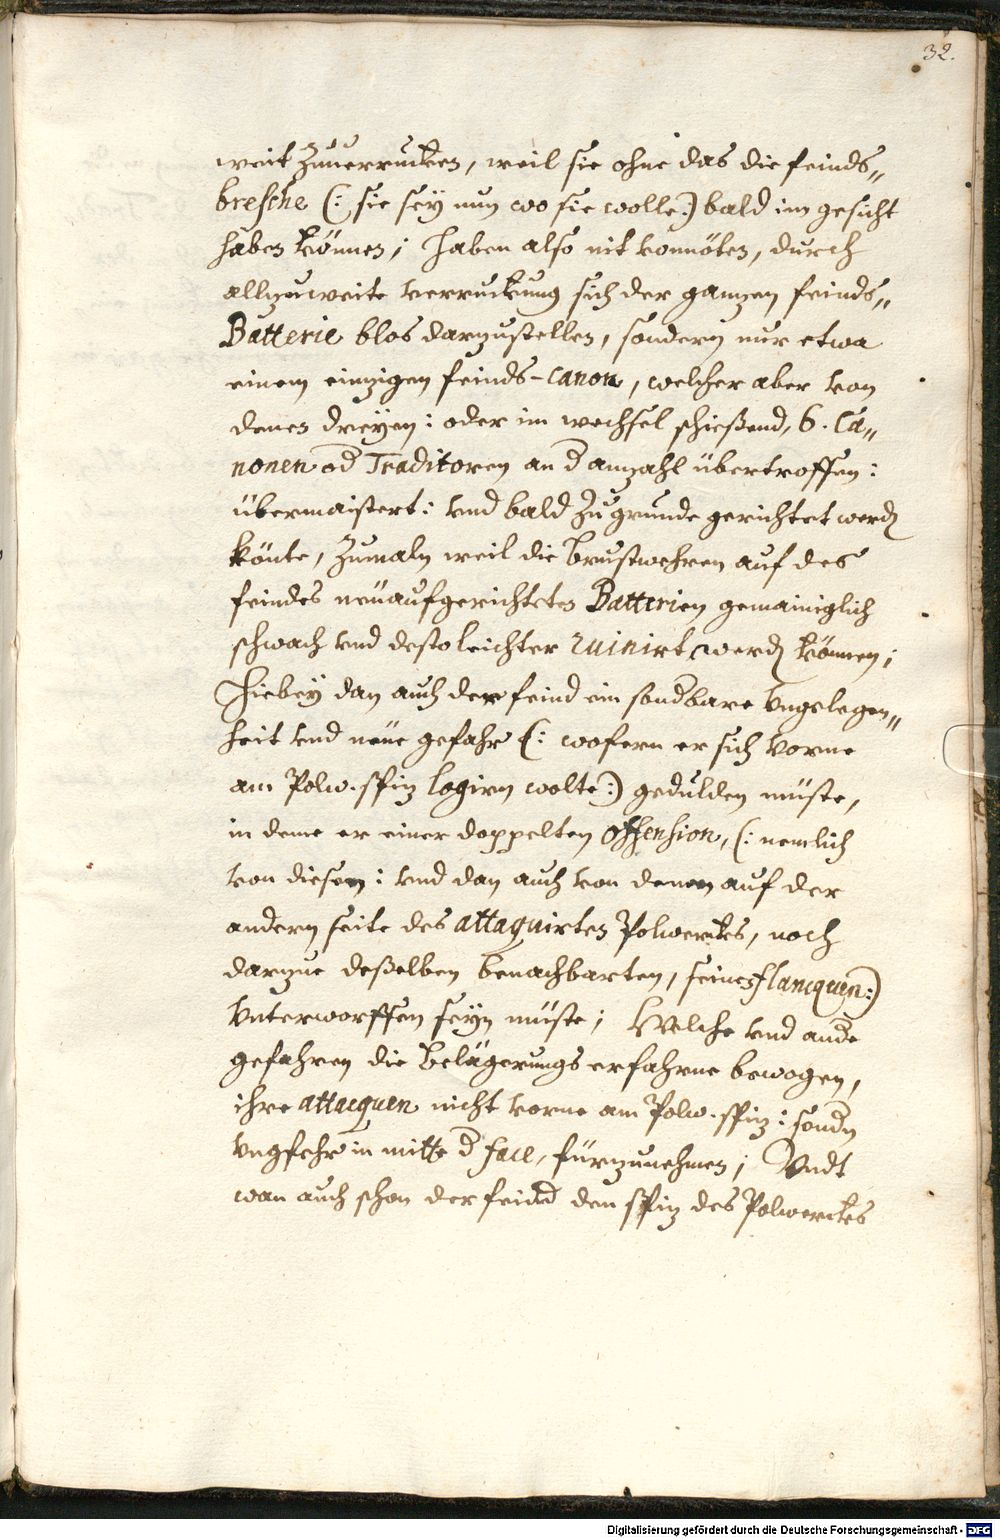 32.
weit Zuuerrucken, weil sie ohne das die feinds„
bresche (: sie sey nun wo sie wolle:) bald im gesicht
haben können; haben also nit vonnöten, durch
allzuweite verruckung sich der ganzen feinds„
Batterie blos darzustellen, sondern nur etwa
einem einzigen feinds-canon, welcher aber von
denen dreyen: oder im wechsel schießend, 6. Ca„
nonen od Traditoren an d anzahl übertroffen:
übermaistert: vnd bald zu grunde gerichtet werd
könte, Zumaln weil die brustwehren auf des
feindes neüaufgerichteten Batterien gemainiglich
schwach vnd desto leichter ruinirt werd können;
Hiebey dan auch der feind ein sondbare vngelegen„
heit vnd neüe gefahr (: wofern er sich vorne
am Polw. spiz logirn wolte:) gedulden müste,
in deme er einer doppelten offension, (: nemlich
von diesen: vnd dan auch von denen auf der
andern seite des attaquirten Polwerckes, noch
darzue deßelben benachbarten, seinen flancquen:)
vnterworffen seyn müste; Welche vnd ande
gefahren die belägerungs erfahrne bewogen,
ihre attacquen nicht vorne am Polw. spiz: sondn
vngfehr in mitte d face, fürzunehmen; Vndt
wan auch schon der feind den spiz des Polwerckes
Digitalisierung gefördert durch die Deutsche Forschungsgemeinschaft - DFG